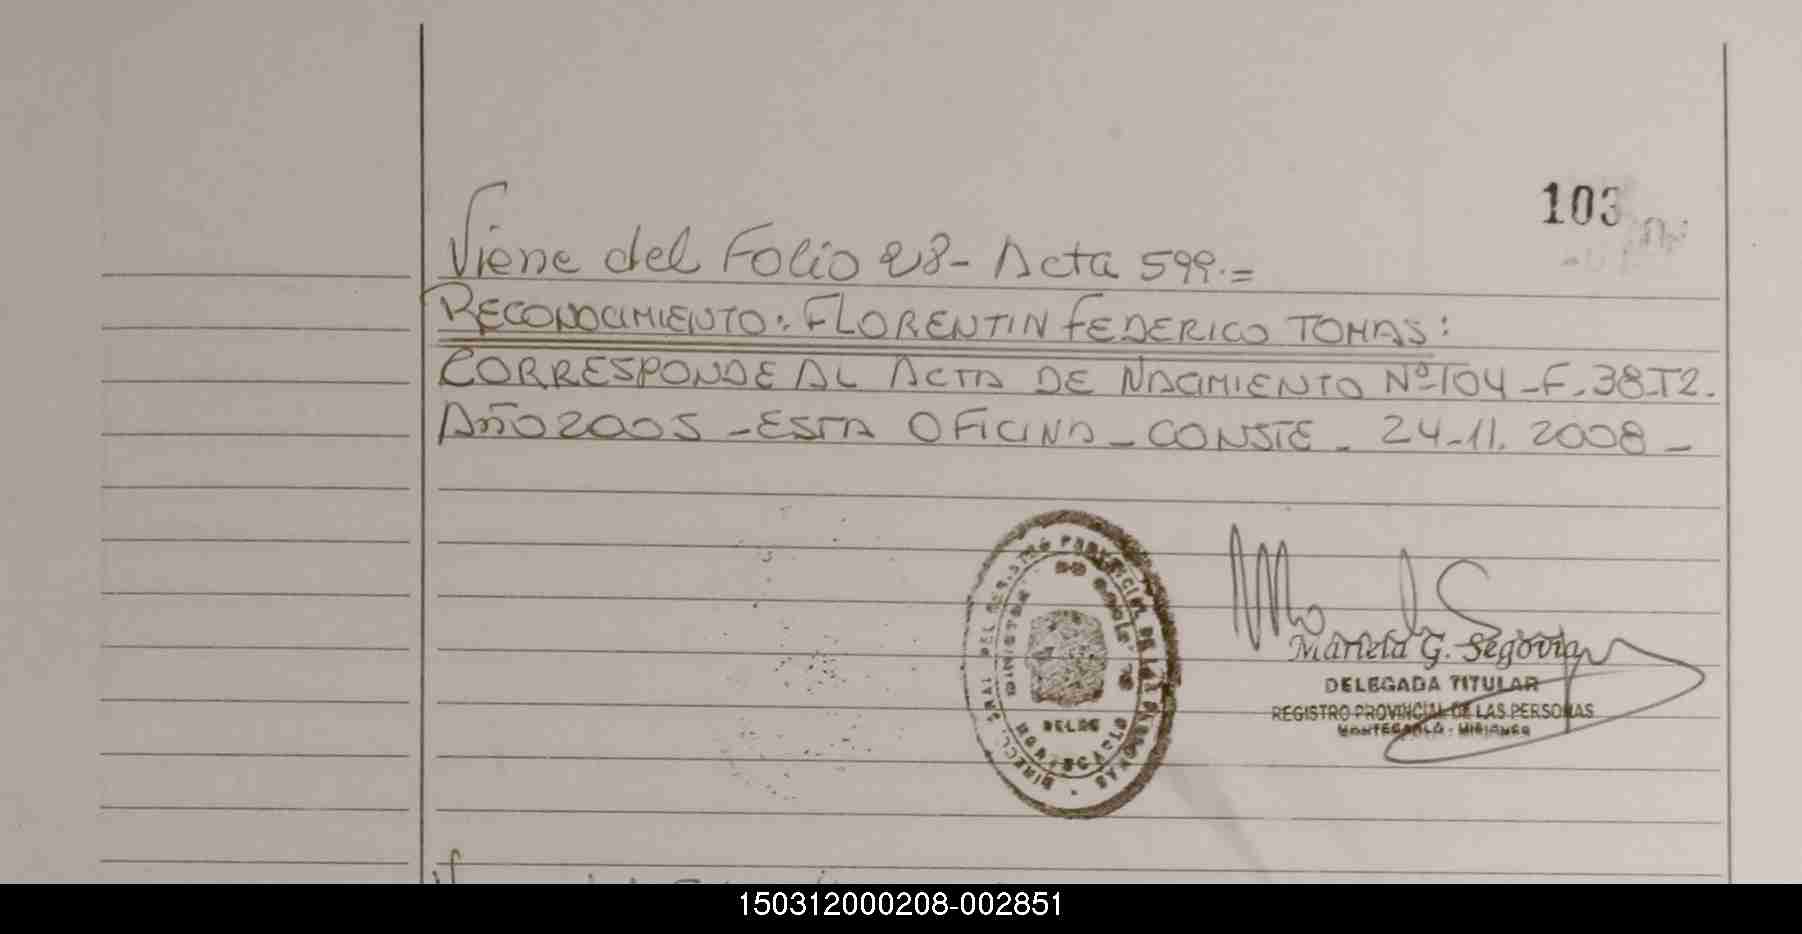 103
Viene del Folio 28- Acta 599.=
RECONOCIMIENTO: FLORENTIN FEDERICO TOMAS:
CORRESPONDE AL ACTA DE NACIMIENTO Nº 104 - F. 38 - T2.
AÑO 2005 - ESTA OFICINA - CONSTE - 24-11. 2008 -
PROVINCIAL DE LAS PERSONAS
Mariela G. Segovia
DELEGADA TITULAR
REGISTRO PROVINCIAL DE LAS PERSONAS
MONTECARLO - MISIONES
150312000208-002851